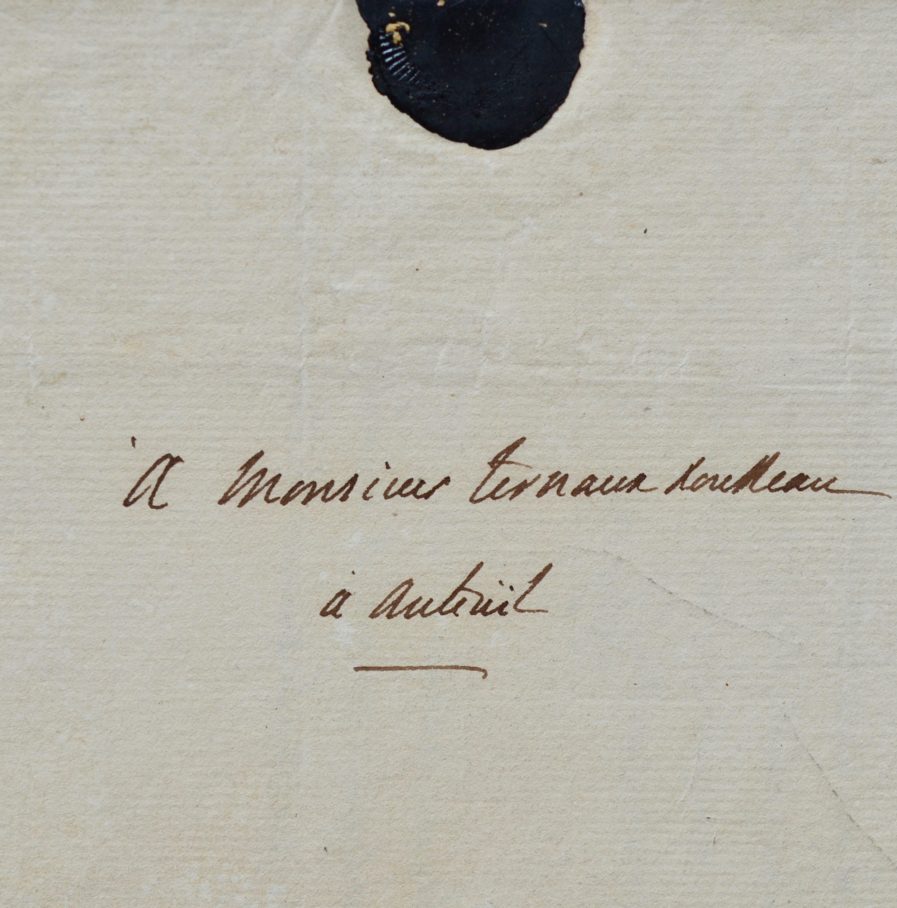 A Monsieur ternaux Rousseau
à auteüil